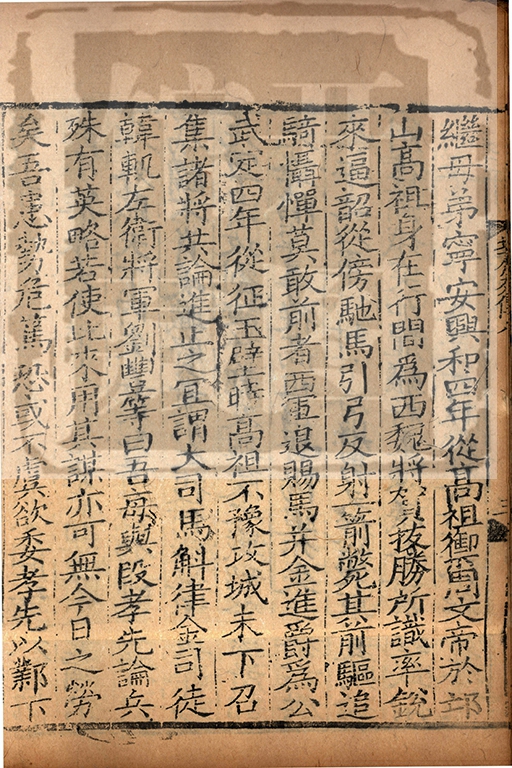 繼母弟寧安興和四年從高祖禦周文帝於邙
山高祖身在行間爲西魏將賀拔勝所識率銳
來逼韶從傍馳馬引弓反射一箭斃其前驅追
騎懾憚莫敢前者西軍退賜馬并金進爵爲公
武定四年從征玉壁時高祖不豫攻城未下召
集諸將共論進止之宜謂大司馬斛律金司徒
韓軌左衛將軍劉豐等曰吾每與段孝先論兵
殊有英略若使比來用其謀亦可無今日之勞
矣吾患勢危篤恐或不虞欲委孝先以鄴下